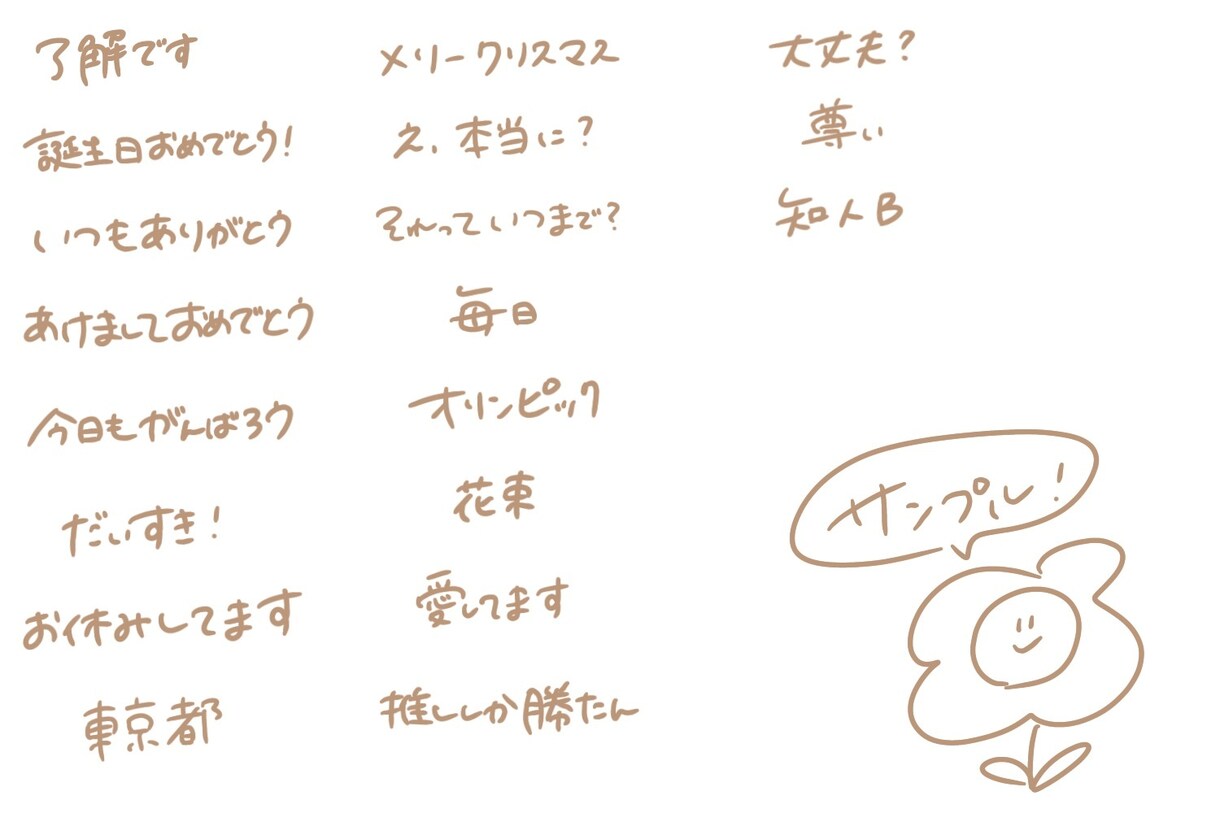 了解です
誕生日おめでとう!
いつもありがとう
あけましておめでとう
今日もがんばろう
だいすき!
お休みしてます
東京都
メリークリスマス
え、本当に?
それっていつまで?
毎日
オリンピック
花束
愛してます
推ししか勝たん
大丈夫?
尊い
知人B
サンプル!